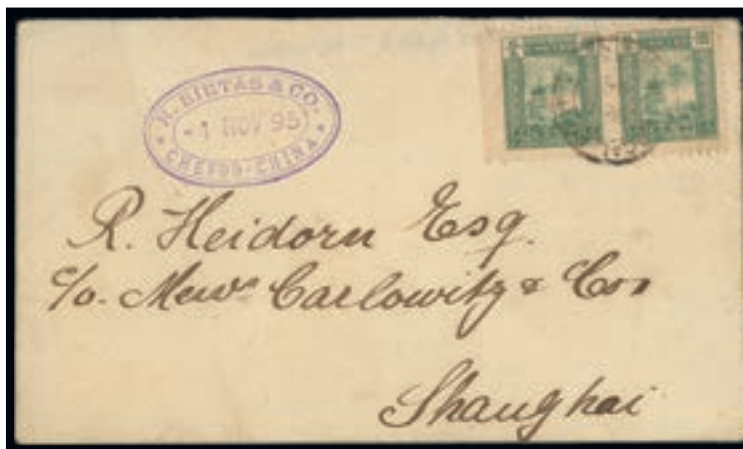 H. SIETAS & CO.
1 NOV 95
CHEFOO-CHINA
R. Heidorn Esq.
c/o. Messrs Carlowitz & Co.
Shanghai